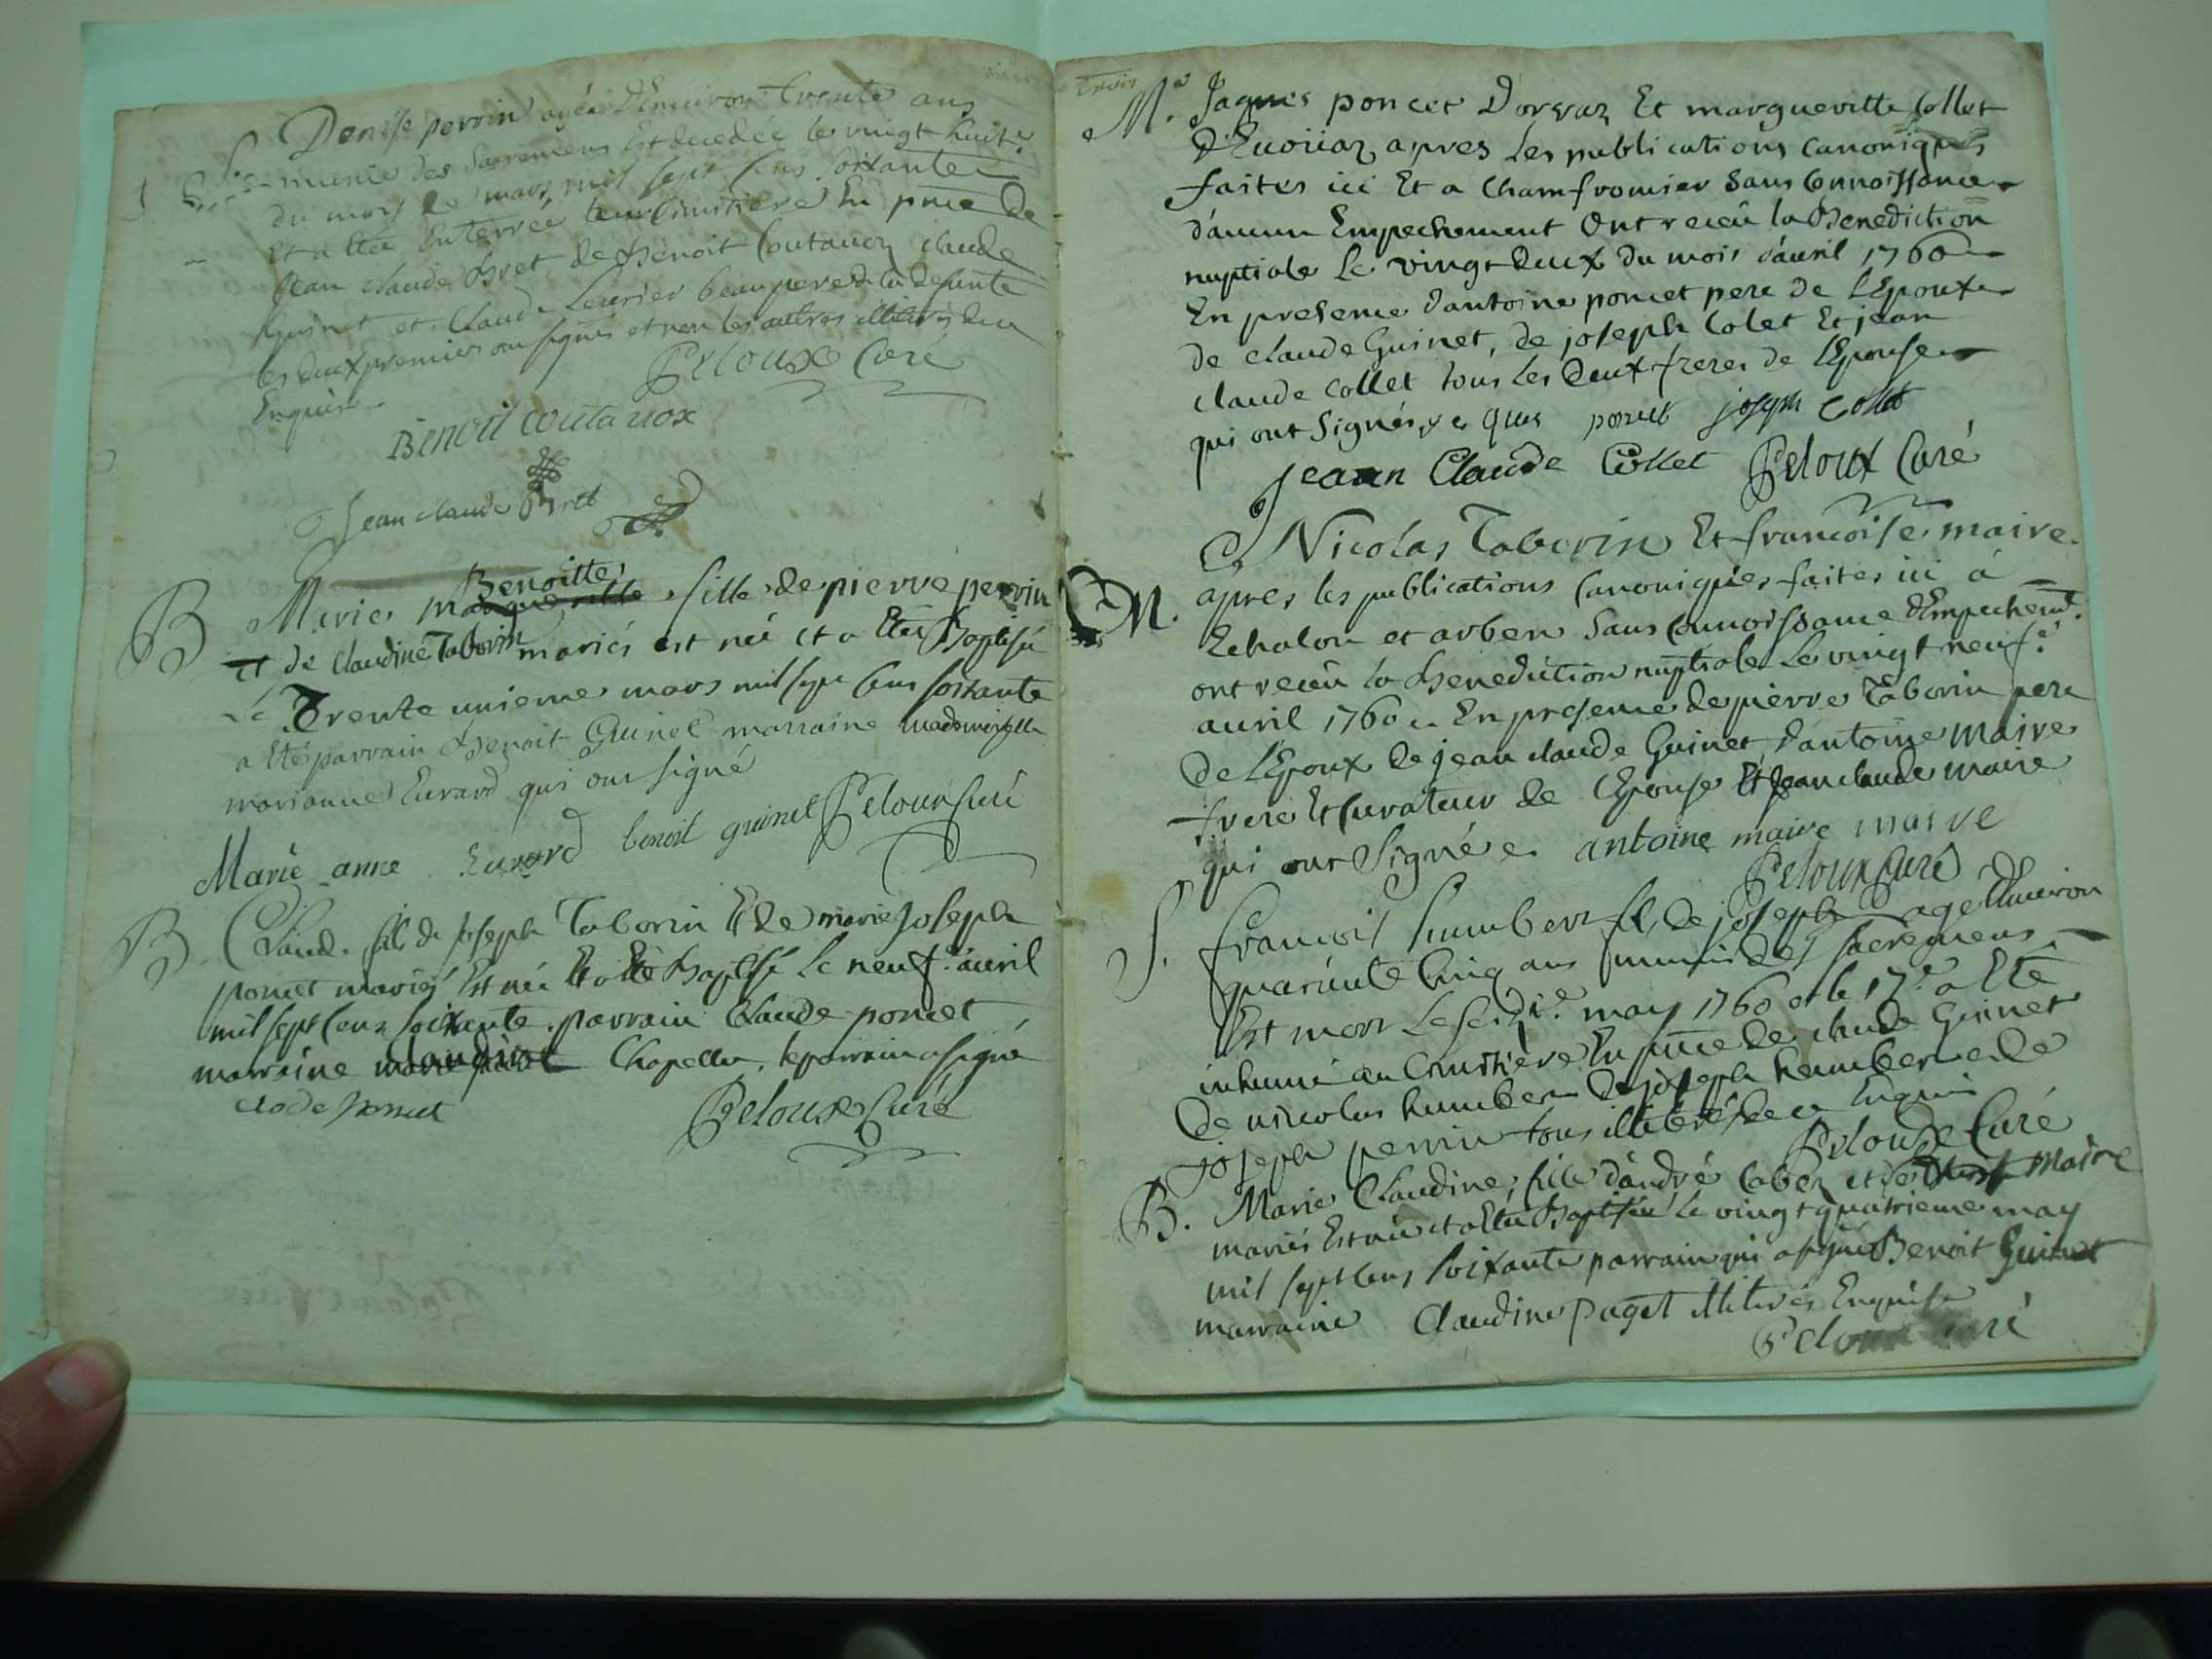 S Denise perrin agée d'Environ trente ans
munie des Sacremens Est decedée le vingt huit.e
du mois de mars mil sept cens soixante
Et a Eté Enterrée au Cimitiere En pnce de
Jean claude Bret, de Benoit Coutavoz claude
Guinet et Claude beaupere de la defunte
les deux premiers ont signés et non les autres illiterés de ce
Enquis
Peloux Curé
Benoit coutavox
Jean claude Bret
Benoitte
B Marie margueritte fille de pierre perrin
et de claudine Taborin mariés est née et a Eté Baptisée
Le Trente unieme mars mil sept cens soixante
a Eté parrain Benoit Guinet marraine mademoiselle
marianne Evrard qui ont signé
Marie anne Evrard benoit guinet Peloux Curé
B Claude fils de Joseph Taborin Et de marie Joseph
poncet mariés Est né Et a Eté Baptisé Le neuf.e avril
mil sept cens soixante. parrain Claude poncet
marraine claudine Chapellu. le parrain a signé
clode ponset Peloux Curé
Trois
M. Jaques poncet D'orvaz Et margueritte Collet
D'Evoüaz apres Les publications Canoniques
faites ici Et a Chamfromier Sans Connoissance
d'aucun Empechement Ont receü la Benediction
nuptiale Le vingt Deux du mois d'avril 1760
En presence d'antoine poncet pere de L'Epoux
de claude Guinet, de joseph Colet Et jean
claude collet tous Les Deux freres de L'Epouse
qui ont Signés ponset joseph Collet
Jean Claude Collet Peloux Curé
M. Nicolas Taborin Et francoise maire
apres les publications Canoniques faites ici à
Echalon et arben Sans Connoissance d'Empechemt.
ont receü la Benediction nuptiale Le vingt neuf.e
avril 1760 En presence de pierre Taborin pere
de L'Epoux de jean claude Guinet, d'antoine maire
frere Et Curateur de l'Epouse Et Jean claude maire
qui ont Signé antoine maire maire
Peloux Curé
S. francois humbert fils de joseph age d'Environ
quarante Cinq ans muni des sacremens
Est mort Le seizi.e may 1760 et le 17.e a Eté
inhumé au Cimitière En pnce de claude Guinet
de nicolas humbert de joseph humbert et de
joseph perrin tous illiterés de ce Enquis
Peloux Curé
B. Marie Claudine, fille d'andré et de maire
mariés Est née et a Eté Baptisée Le vingt quatrieme may
mil sept cens soixante parrain qui a signé Benoit Guinet
marraine Claudine paget illiterée Enquise
Peloux Curé